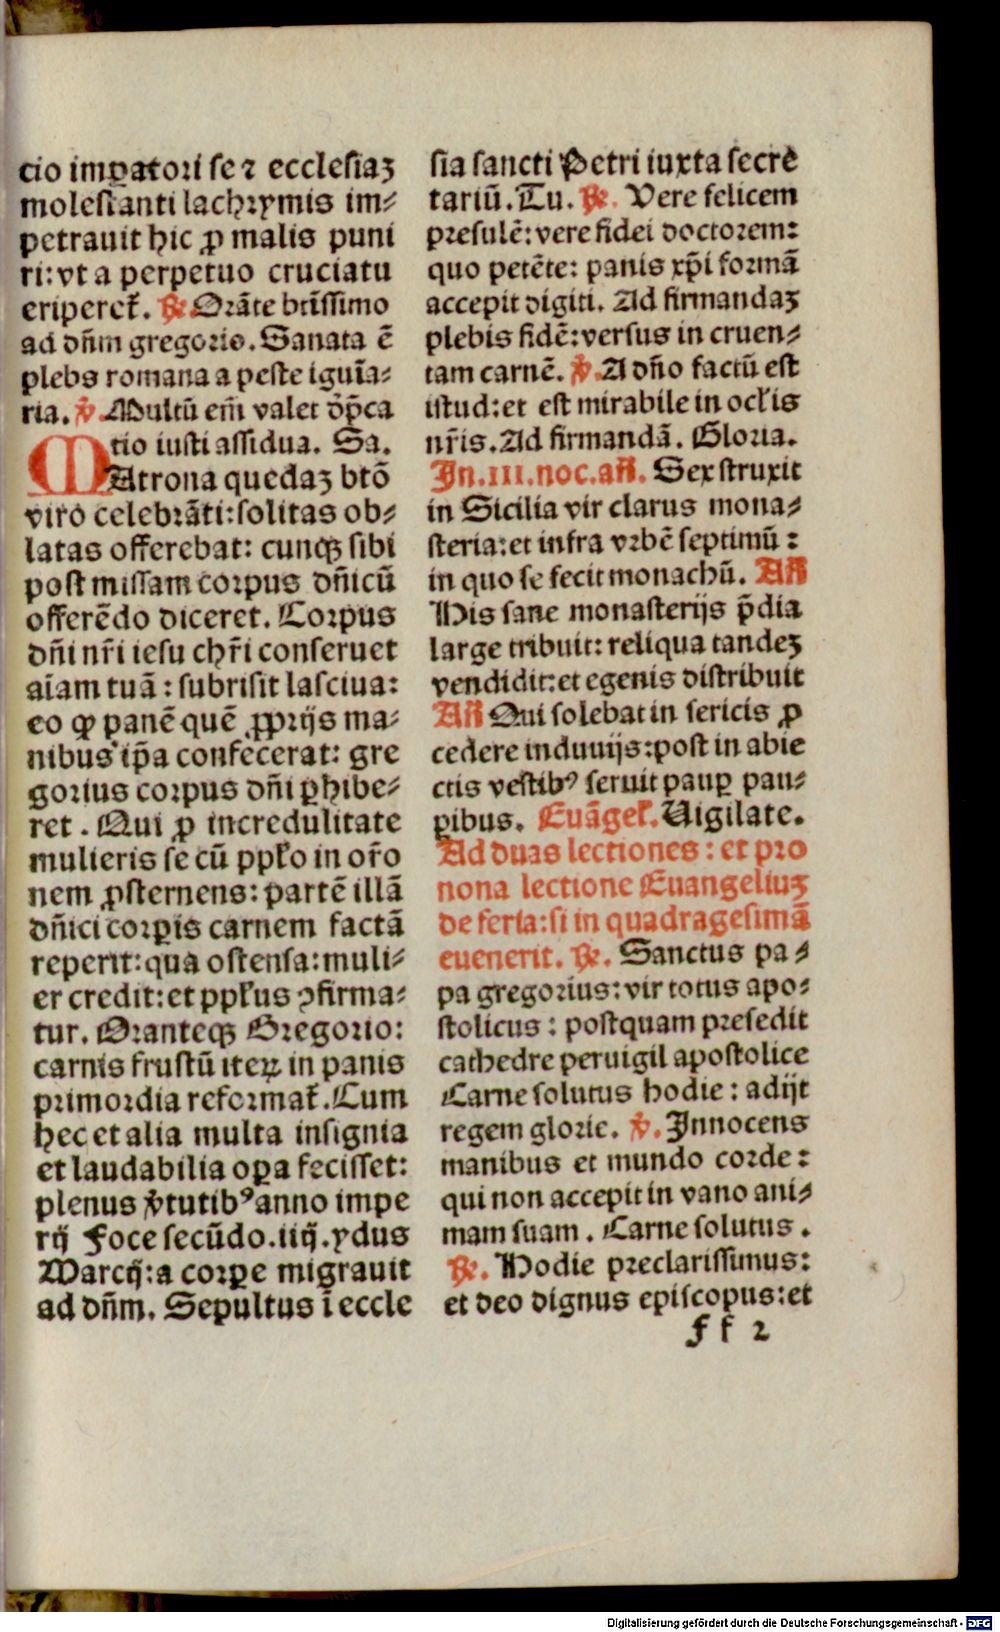 cio imꝑatori se ⁊ ecclesiaꝫ
molestanti lachrymis im⸗
petrauit hic ꝓ malis puni
ri: vt a perpetuo cruciatu
eriperet᷑. ℟. Orãte btīssimo
ad dñm gregorio. Sanata ē
plebs romana a peste iguīa⸗
ria. ℣. Multũ em̃ valet dp̃ca
tio iusti assidua. Sa.
MAtrona quedaꝫ btõ
viro celebrãti: solitas ob⸗
latas offerebat: cunqꝫ sibi
post missam corpus dñicũ
offerẽdo diceret. Corpus
dñi nr̃i iesu chr̃i conseruet
aīam tuã: subrisit lasciua:
eo ꝙ panẽ quẽ ꝓprijs ma⸗
nibus ip̃a confecerat: gre
gorius corpus dñi ꝑhibe⸗
ret. Qui ꝓ incredulitate
mulieris se cũ ppło in or̃o
nem ꝓsternens: partẽ illã
dñici corꝑis carnem factã
reperit: qua ostensa: muli⸗
er credit: et ppłus ꝯfirma⸗
tur. Oranteqꝫ Gregorio:
carnis frustũ iteꝝ in panis
primordia reformat᷑. Cum
hec et alia multa insignia
et laudabilia oꝑa fecisset:
plenus v̓tutibꝰ anno impe
rij Foce secũdo. iiij. ydus
Marcij: a corꝑe migrauit
ad dñm. Sepultus ī eccle
sia sancti Petri iuxta secre
tariũ. Tu. ℟. Vere felicem
presulẽ: vere fidei doctorem:
quo petẽte: panis xp̃i formã
accepit digiti. Ad firmandaꝫ
plebis fidẽ: versus in cruen⸗
tam carnẽ. ℣. A dño factũ est
istud: et est mirabile in ocłis
nr̃is. Ad firmandã. Gloria.
In. III. noc. añ. Sex struxit
in Sicilia vir clarus mona⸗
steria: et infra vrbẽ septimũ:
in quo se fecit monachũ. Añ
His sane monasterijs p̃dia
large tribuit: reliqua tandeꝫ
vendidit: et egenis distribuit
Añ Qui solebat in sericis ꝓ
cedere induuijs: post in abie
ctis vestibꝰ seruit pauꝑ pau⸗
ꝑibus. Euãgeł. Uigilate.
Ad duas lectiones: et pro
nona lectione Euangeliuꝫ
de feria: si in quadragesimã
euenerit. ℟. Sanctus pa⸗
pa gregorius: vir totus apo⸗
stolicus: postquam presedit
cathedre peruigil apostolice
Carne solutus hodie: adijt
regem glorie. ℣. Innocens
manibus et mundo corde:
qui non accepit in vano ani⸗
mam suam. Carne solutus.
℟. Hodie preclarissimus:
et deo dignus episcopus: et
ff 2
Digitalisierung gefördert durch die Deutsche Forschungsgemeinschaft - DFG